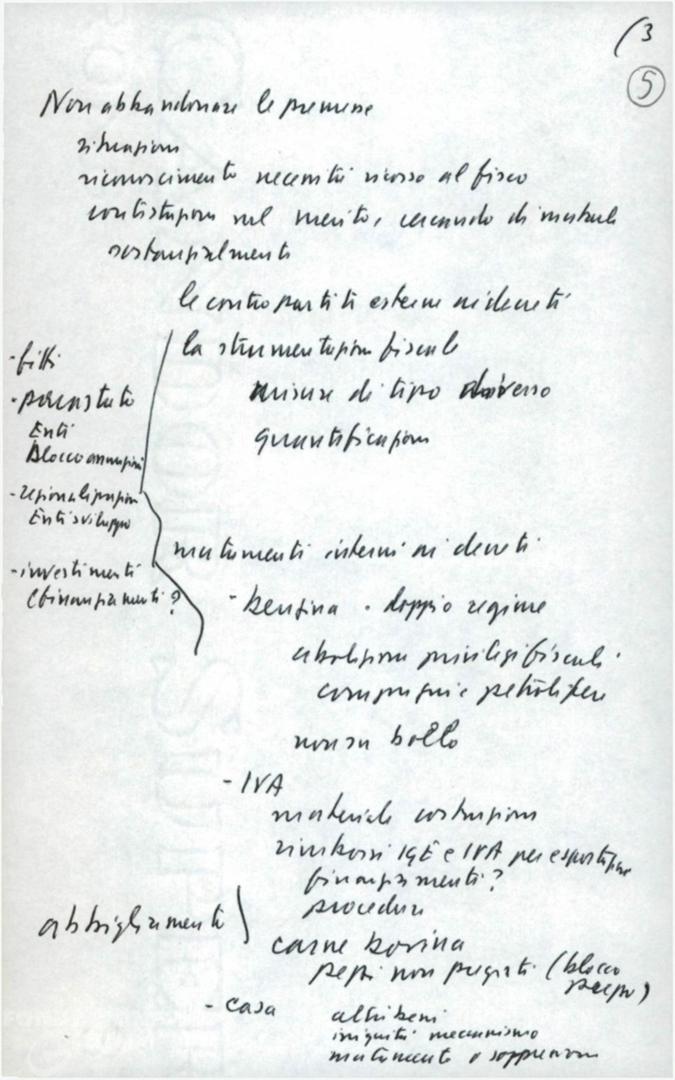 (3
5
Non abbandonare le premesse
situazioni
riconoscimento necessità ricorso al fisco
contestazioni nel merito, cercando di mutarle
sostanzialmente
le contropartite esterne ai decreti
la strumentazione fiscale
misure di tipo diverso
quantificazioni
- fitti
- parastato
Enti
Blocco assunzioni
- regionalizzazioni
Enti sviluppo
- investimenti
(finanziamenti?
mutamenti interni ai decreti
- benzina - doppio regime
abolizioni privilegi fiscali
compagnie petrolifere
non su bollo
- IVA
materiale costruzioni
rimborsi IGE e IVA per esportazione
finanziamenti?
procedure
abbigliamento
carne bovina
pezzi non pregiati (blocco
prezzo)
- casa altri beni
iniquità meccanismo
mutamento o soppressione